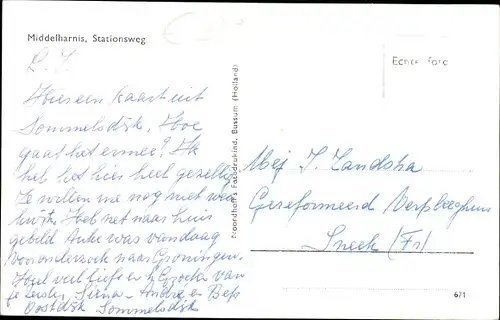 Middelharnis, Stationsweg
L. J.
Hier een kaart uit
Sommelsdijk. Hoe
gaat het ermee? Ik
heb het hier heel gezellig
Ze willen me nog niet
kwijt. Heb net naar huis
gebeld Anke was vandaag
voor onderzoek naar Groningen.
Heel veel liefs en groeten van
je zuster Siena - André en Bep
Oostdijk Sommelsdijk
Noordhoff's Fotodrukind, Bussum (Holland)
Echte foto
Mej J. Landsha
Gereformeerd Verpleeghuis
Sneek (Fr)
671